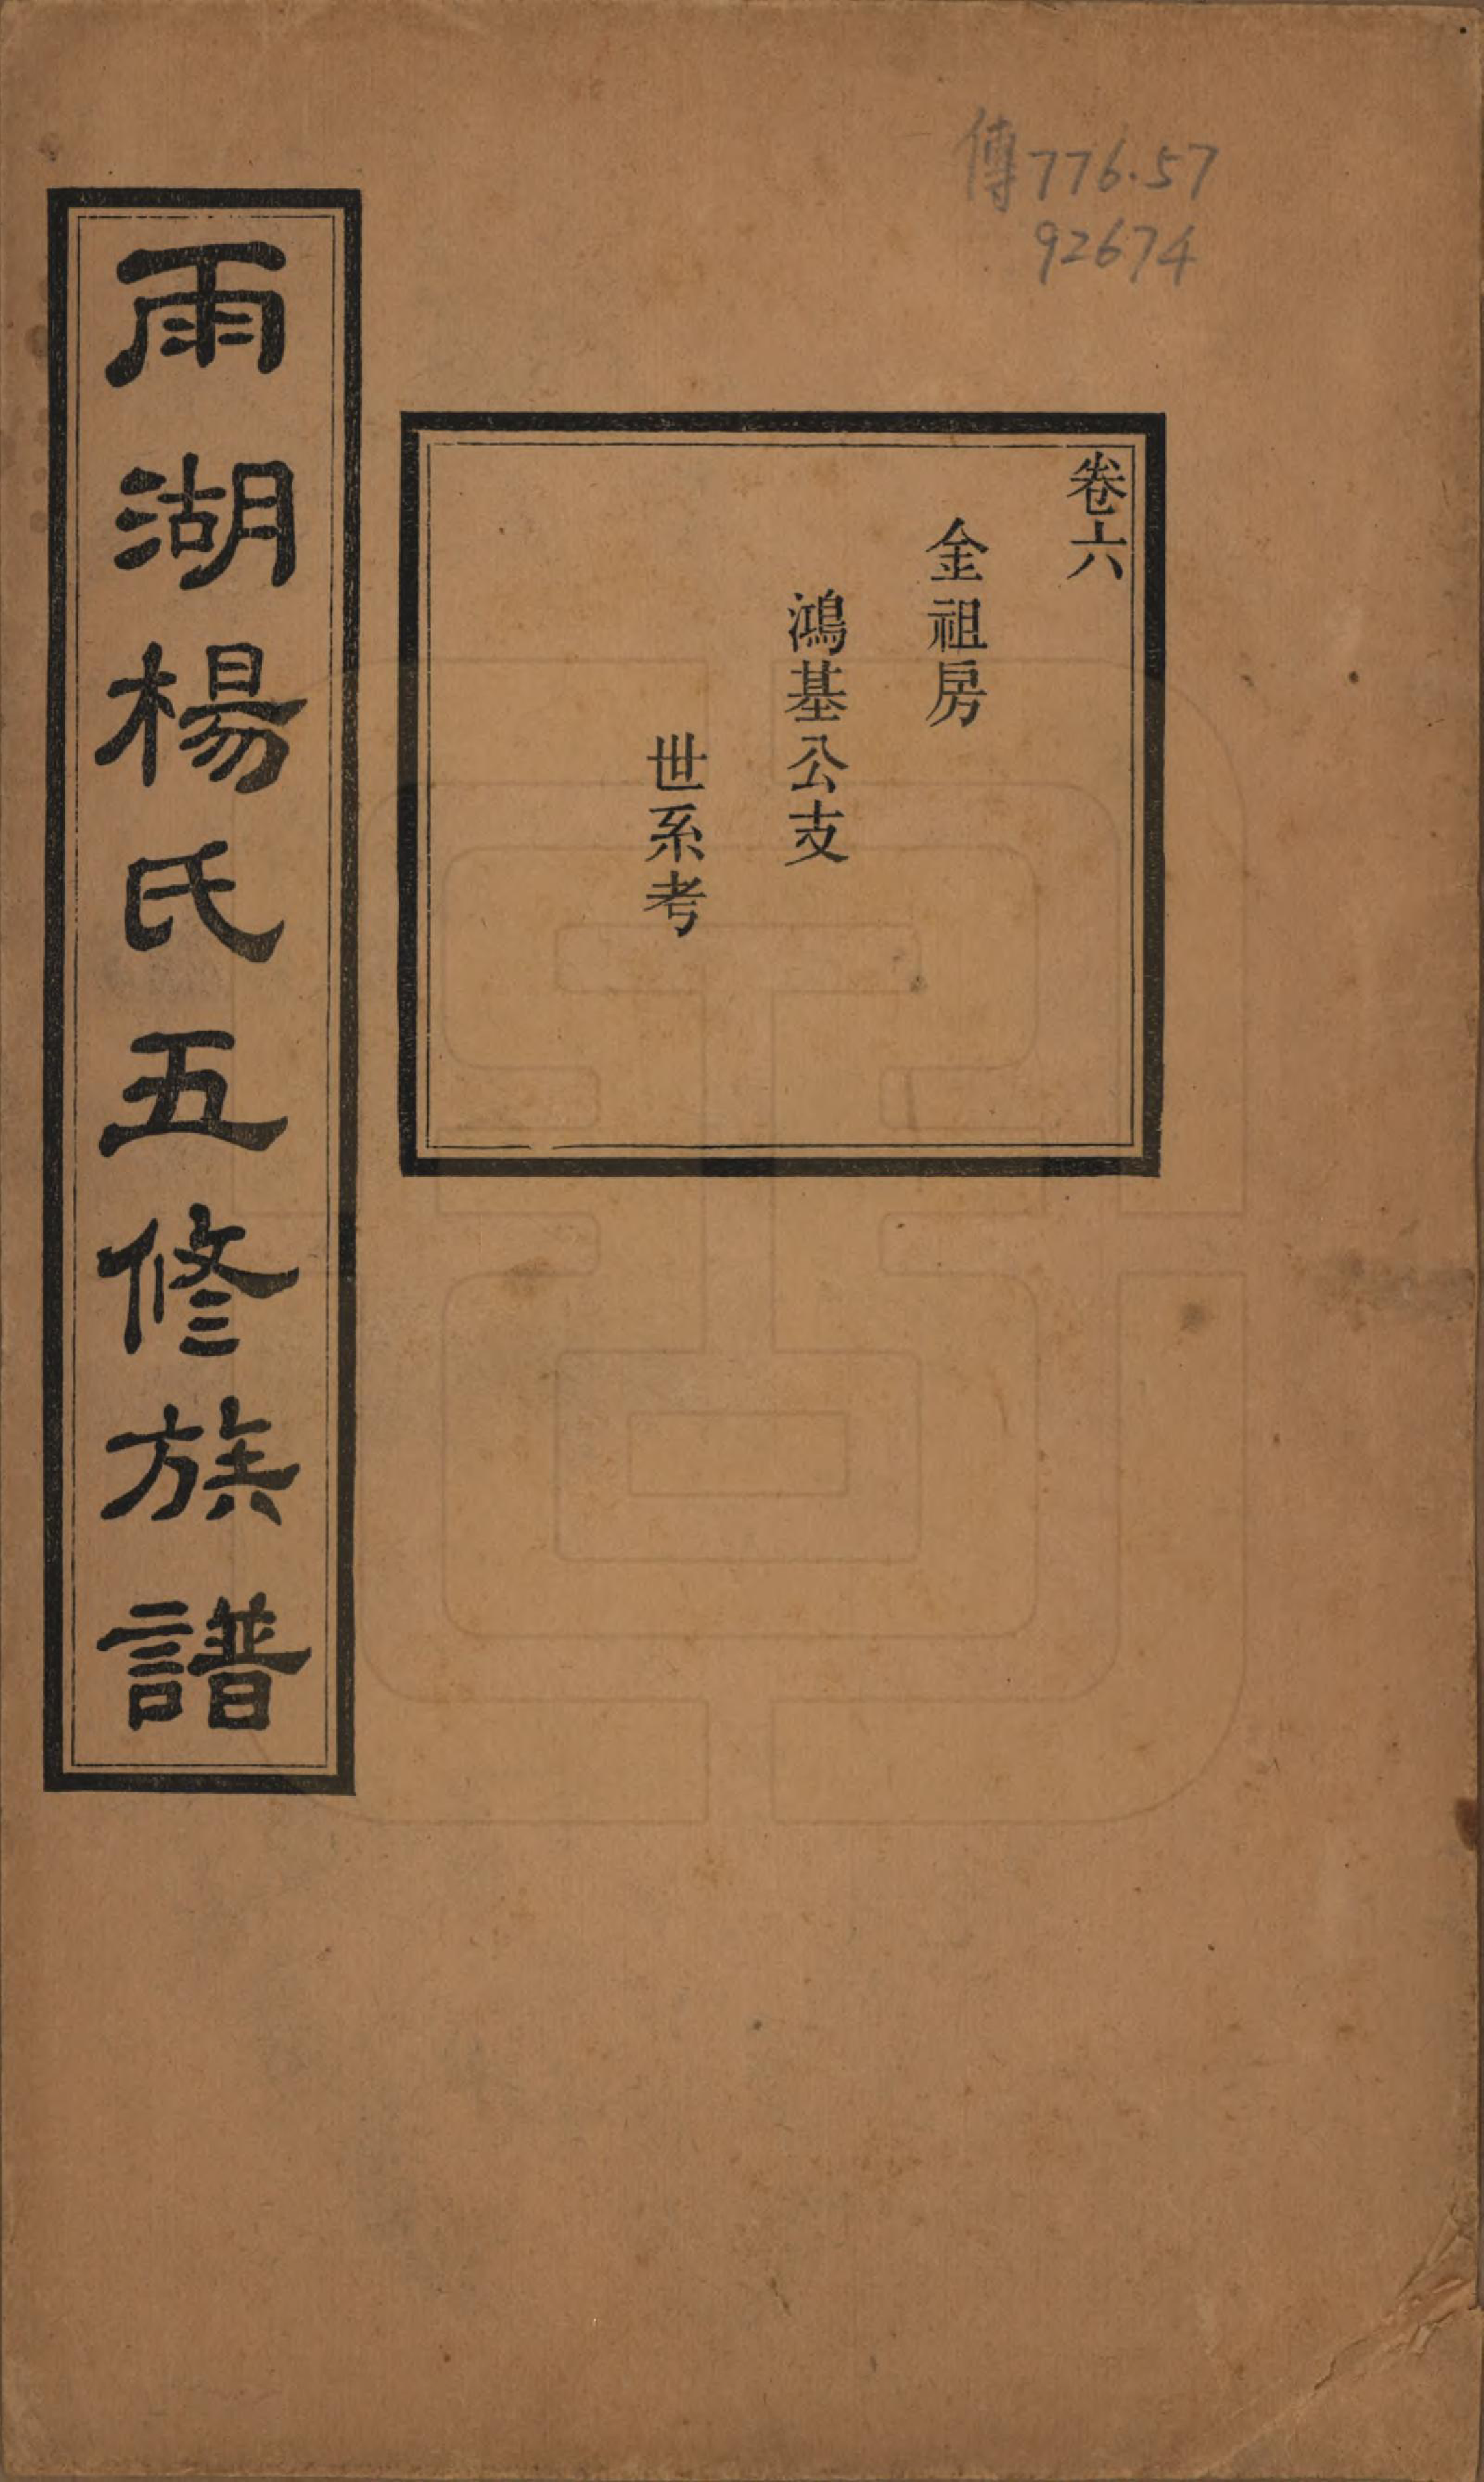 傳776.57
92674
卷六
金祖房
鴻基公支
世系考
雨湖楊氏五修族譜